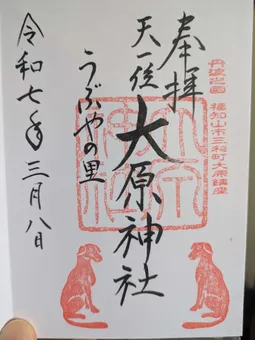 丹波之国
福知山市三和町大原鎮座
奉拝
天一位
大原神社
うぶやの里
令和七年三月八日